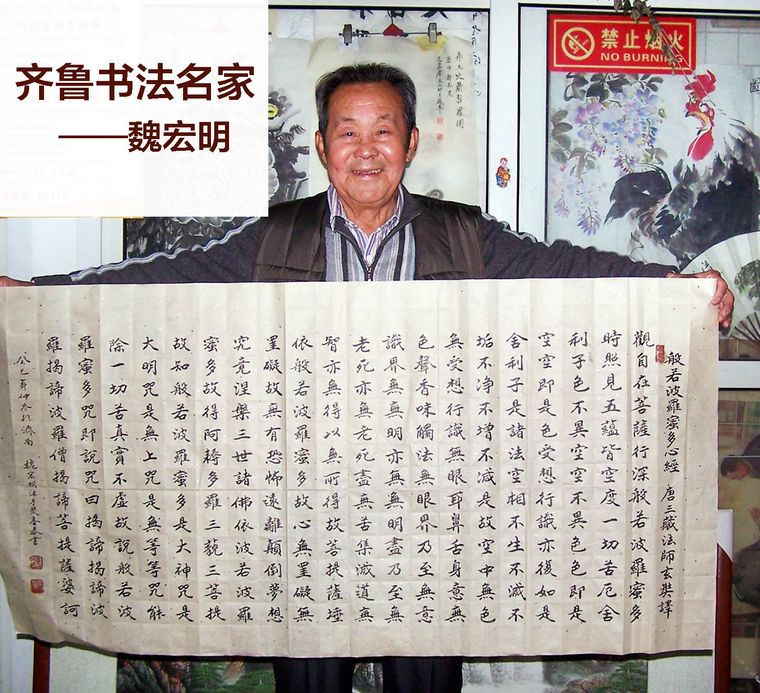 齐鲁书法名家
——魏宏明
禁止烟火
NO BURNING
般若波羅蜜多心經 唐三藏法師玄奘譯
觀自在菩薩行深般若波羅蜜多
時照見五蘊皆空度一切苦厄舍
利子色不異空空不異色色即是
空空即是色受想行識亦復如是
舍利子是諸法空相不生不滅不
垢不淨不增不減是故空中無色
無受想行識無眼耳鼻舌身意無
色聲香味觸法無眼界乃至無意
識界無無明亦無無明盡乃至無
老死亦無老死盡無苦集滅道無
智亦無得以無所得故菩提薩埵
依般若波羅蜜多故心無罣礙無
罣礙故無有恐怖遠離顛倒夢想
究竟涅槃三世諸佛依般若波羅
蜜多故得阿耨多羅三藐三菩提
故知般若波羅蜜多是大神咒是
大明咒是無上咒是無等等咒能
除一切苦真實不虛故說般若波
羅蜜多咒即說咒曰揭諦揭諦波
羅揭諦波羅僧揭諦菩提薩婆訶
癸巳年仲冬於濟南 魏宏明沐手焚香恭書